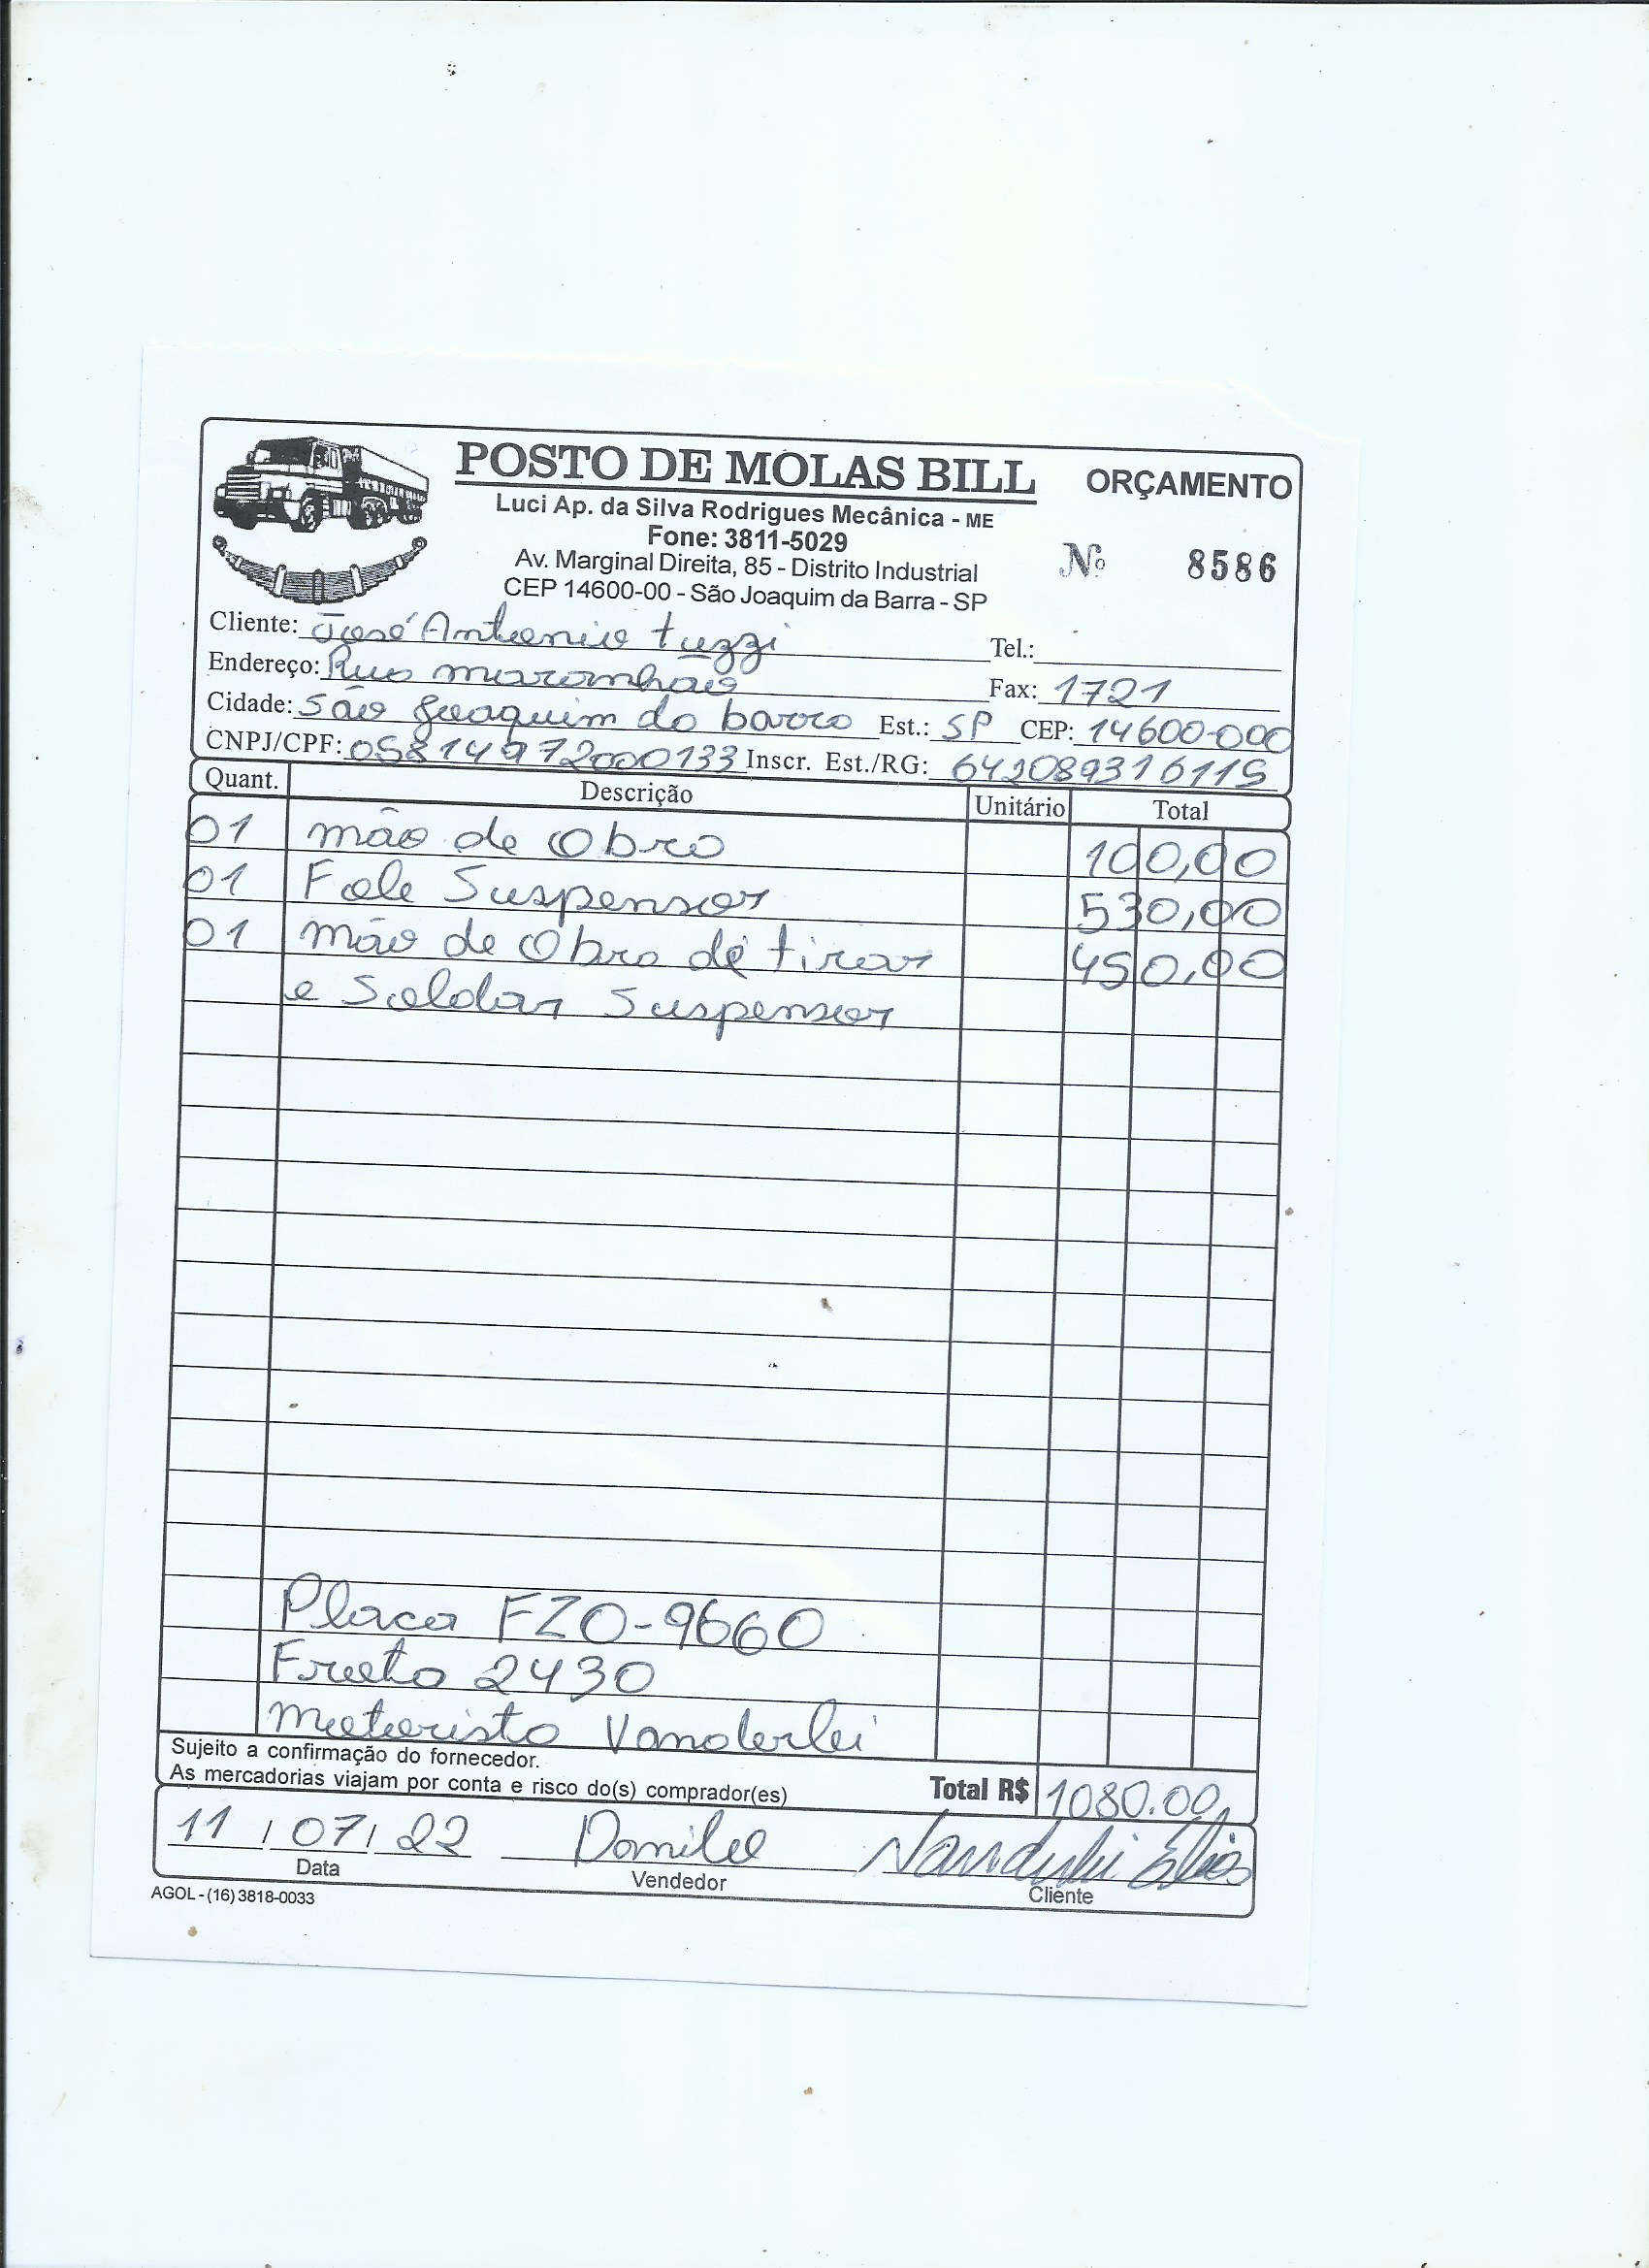 POSTO DE MOLAS BILL ORÇAMENTO
Luci Ap. da Silva Rodrigues Mecânica - ME
Fone: 3811-5029
Av. Marginal Direita, 85 - Distrito Industrial
Nº 8586
CEP 14600-00 - São Joaquim da Barra - SP
Cliente: José Antonio tuzzi Tel.:
Endereço: Rua maranhão Fax: 1721
Cidade: São Joaquim da barra Est.: SP CEP: 14600-000
CNPJ/CPF: 05814972000133 Inscr. Est./RG: 642089316115
Quant. Descrição Unitário Total
01 mão de Obra 100,00
01 Fole Suspensor 530,00
01 mão de Obra de tirar 450,00
e Soldar Suspensor
Placa FZO-9660
Frota 2430
motorista Vanderlei
Sujeito a confirmação do fornecedor.
As mercadorias viajam por conta e risco do(s) comprador(es) Total R$ 1080.00
11 / 07 / 22 Danilo Vanderlei Elias
Data Vendedor Cliente
AGOL - (16) 3818-0033